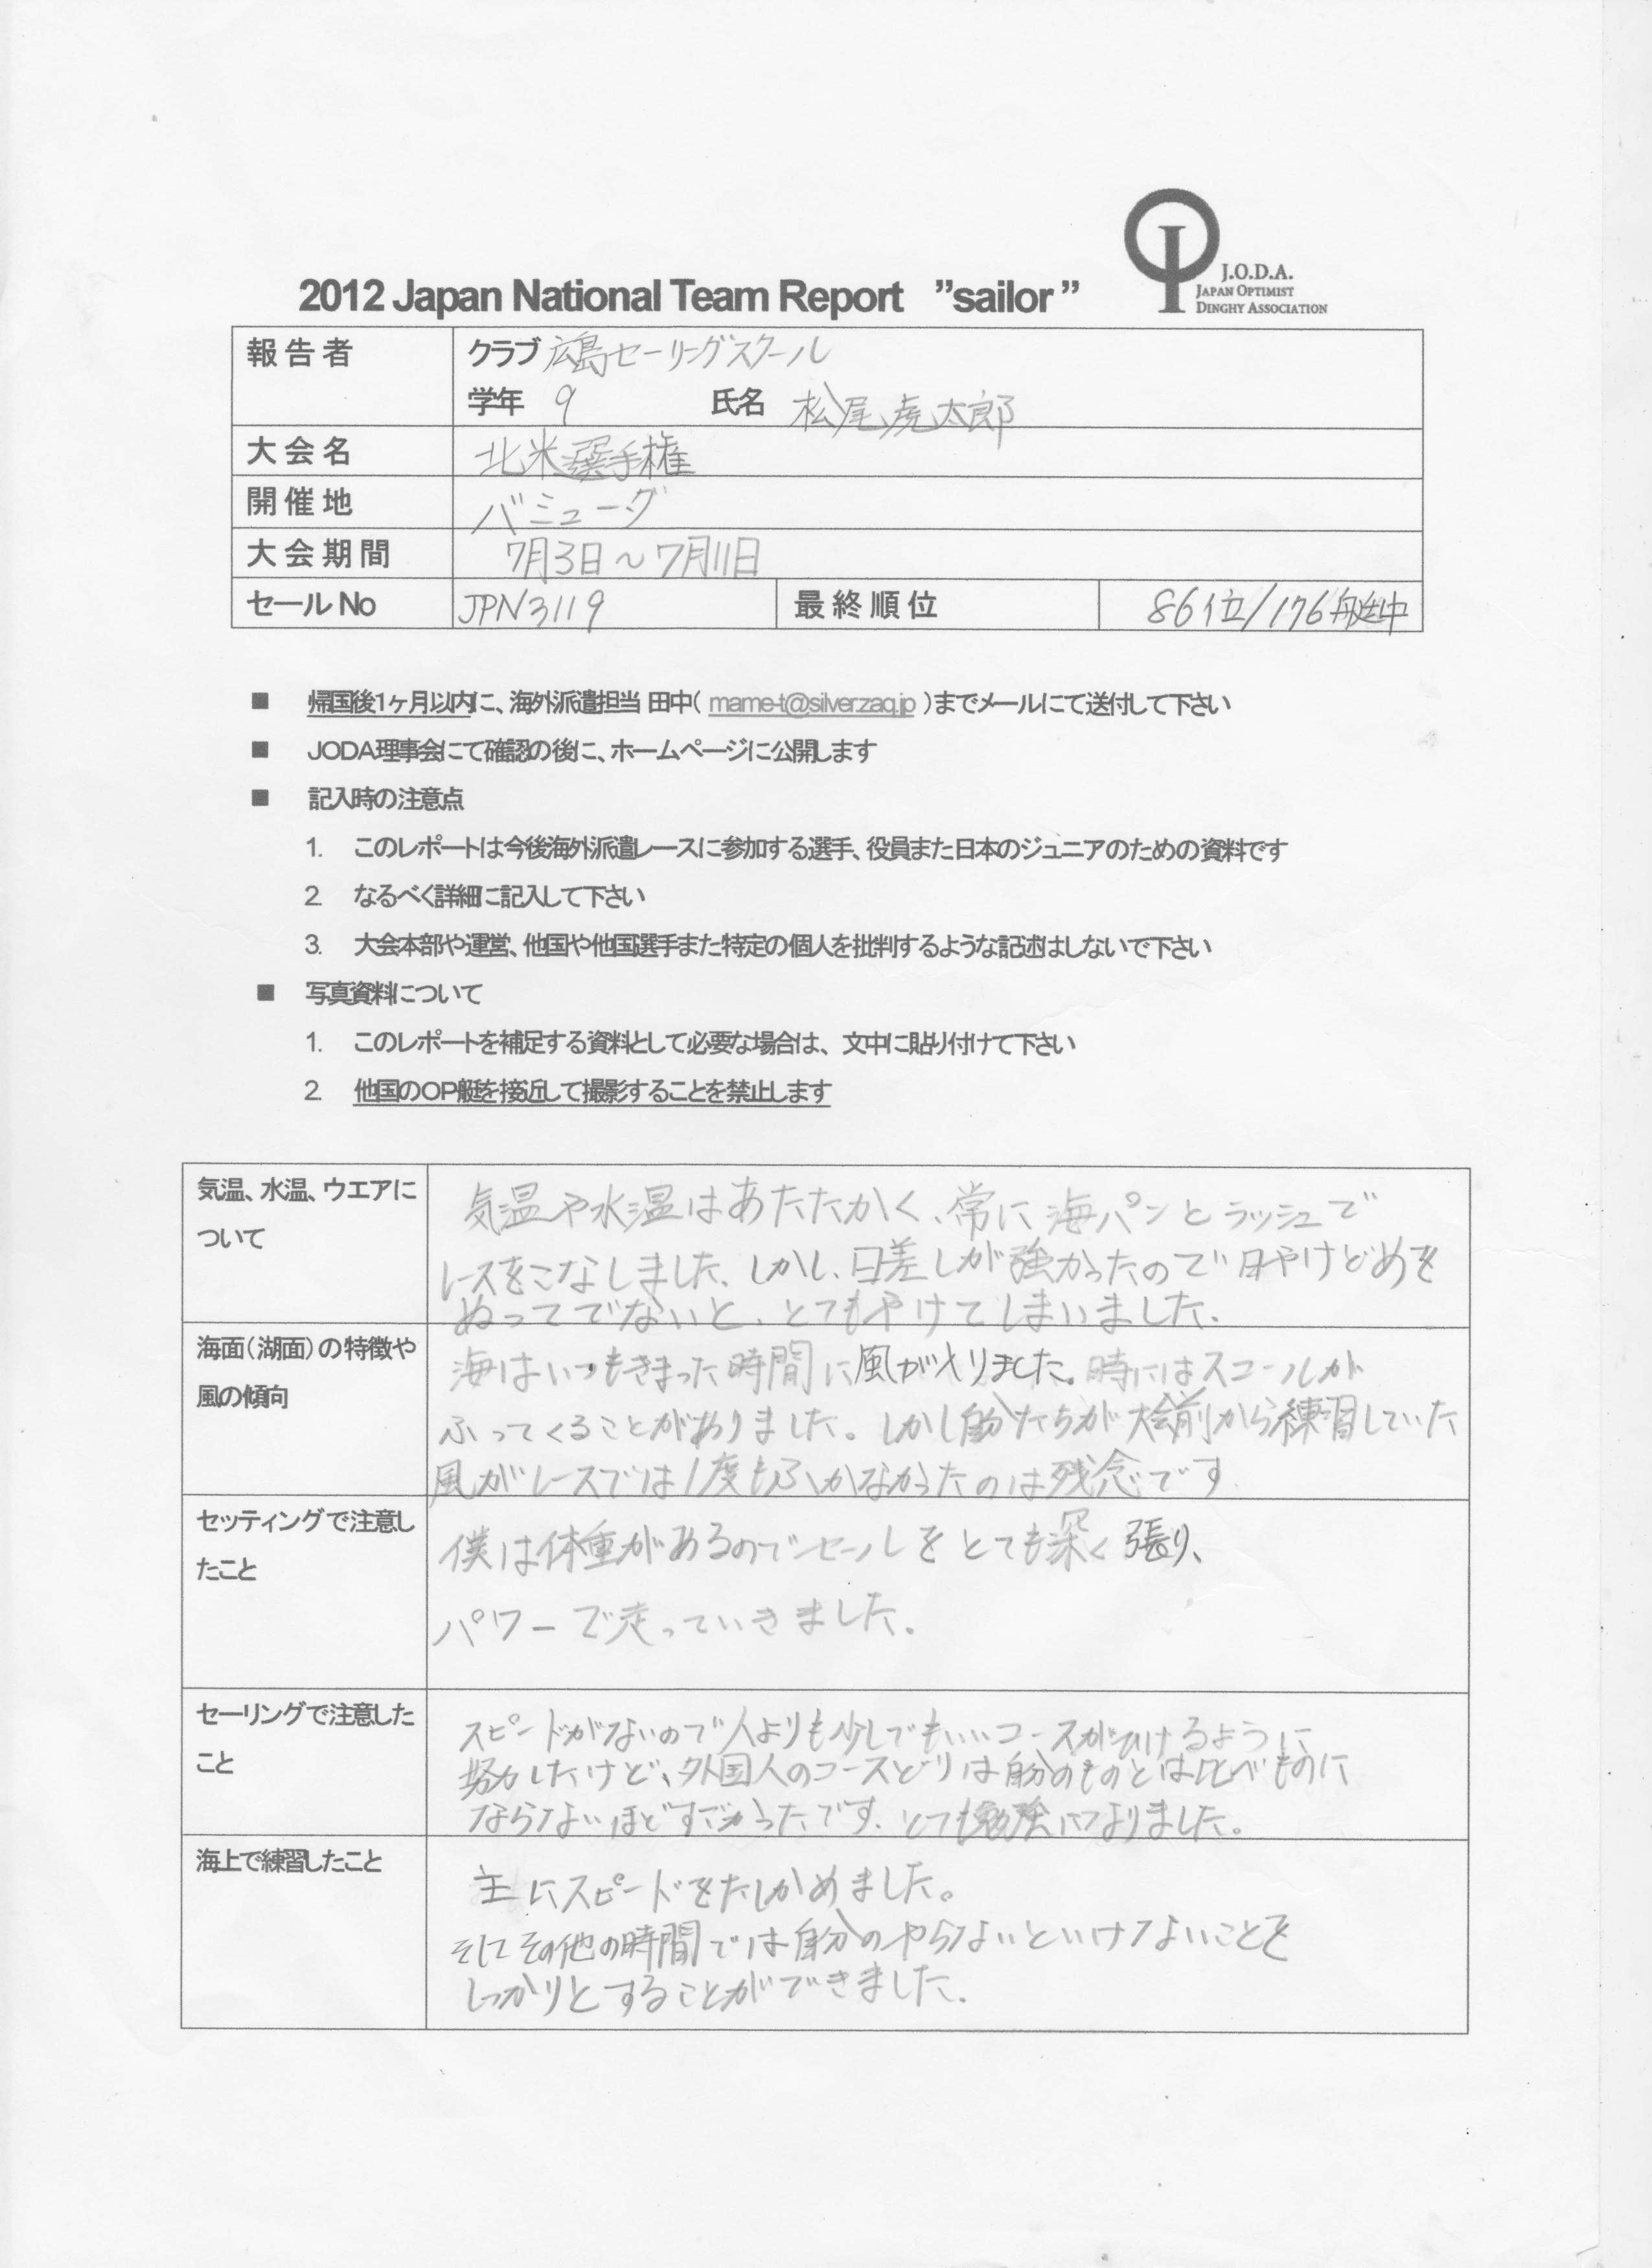 J.O.D.A.
JAPAN OPTIMIST
DINGHY ASSOCIATION
2012 Japan National Team Report ”sailor”
報告者 クラブ 広島セーリングスクール
学年 9 氏名 松尾虎太郎
大会名 北米選手権
開催地 バミューダ
大会期間 7月3日～7月11日
セールNo JPN3119 最終順位 86位/176艇中
■ 帰国後1ヶ月以内に、海外派遣担当 田中( mame-t@silver.zaq.jp )までメールにて送付して下さい
■ JODA理事会にて確認の後に、ホームページに公開します
■ 記入時の注意点
1. このレポートは今後海外派遣レースに参加する選手、役員また日本のジュニアのための資料です
2. なるべく詳細に記入して下さい
3. 大会本部や運営、他国や他国選手また特定の個人を批判するような記述はしないで下さい
■ 写真資料について
1. このレポートを補足する資料として必要な場合は、文中に貼り付けて下さい
2. 他国のOP艇を接近して撮影することを禁止します
気温、水温、ウエアに
ついて
気温や水温はあたたかく、常に海パンとラッシュで
レースをこなしました、しかし、日差しが強かったので日やけどめを
ぬってでないと、とてもやけてしまいました。
海面(湖面)の特徴や
風の傾向
海はいつもきまった時間に風が入りました。時にはスコールが
ふってくることがありました。しかし自分たちが大会前から練習していた
風がレースでは1度もふかなかったのは残念です.
セッティングで注意し
たこと
僕は体重があるのでセールをとても深く張り、
パワーで走っていきました。
セーリングで注意した
こと
スピードがないので人よりも少しでもいいコースがひけるように
努力したけど、外国人のコースどりは自分のものとは比べものに
ならないほどすごかったです、とても勉強になりました。
海上で練習したこと
主にスピードをたしかめました。
そしてその他の時間では自分のやらないといけないことを
しっかりとすることができました.